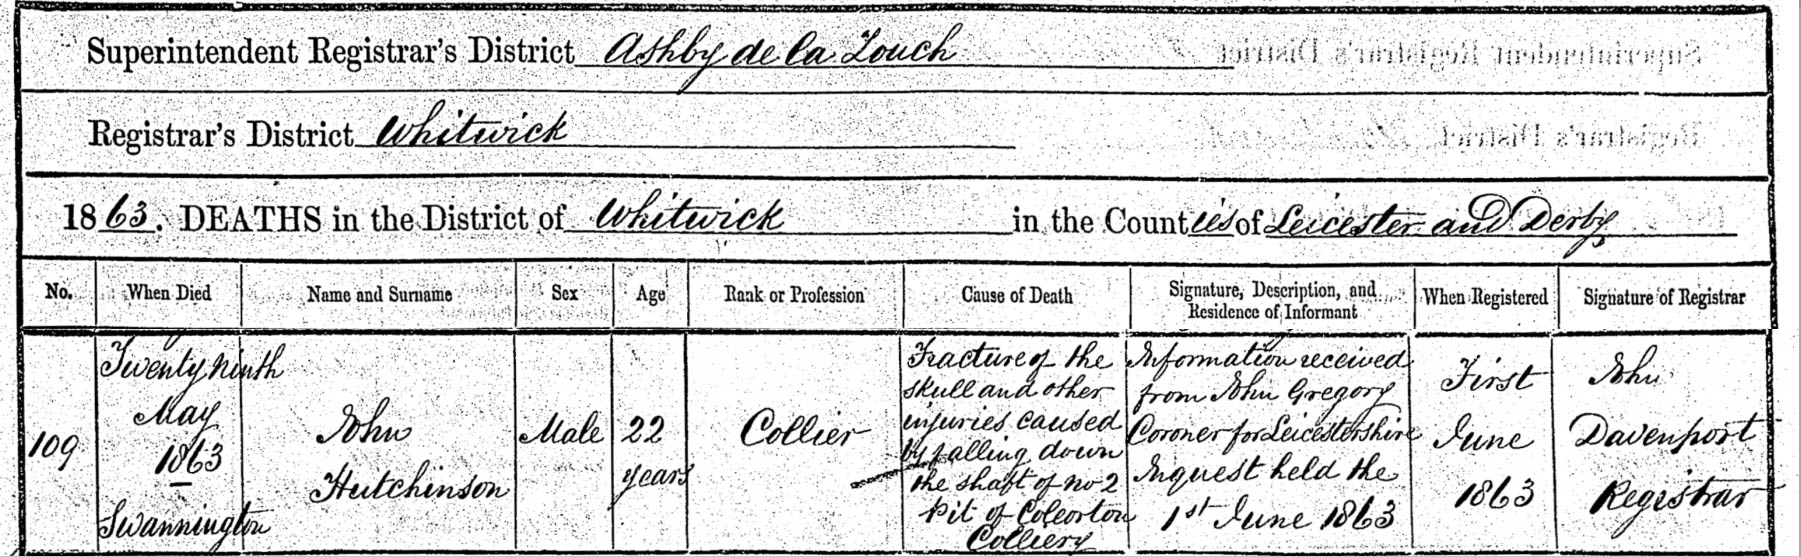 Superintendent Registrar's District Ashby de la Zouch
Registrar's District Whitwick
1863. DEATHS in the District of Whitwick in the Counties of Leicester and Derby
No. When Died Name and Surname Sex Age Rank or Profession Cause of Death Signature, Description, and Residence of Informant When Registered Signature of Registrar
109
Twenty ninth
May
1863
Swannington
John
Hutchinson
Male
22
years
Collier
Fracture of the
skull and other
injuries caused
by falling down
the shaft of no 2
Pit of Coleorton
Colliery
Information received
from John Gregory
Coroner for Leicestershire
Inquest held the
1st June 1863
First
June
1863
John
Davenport
Registrar